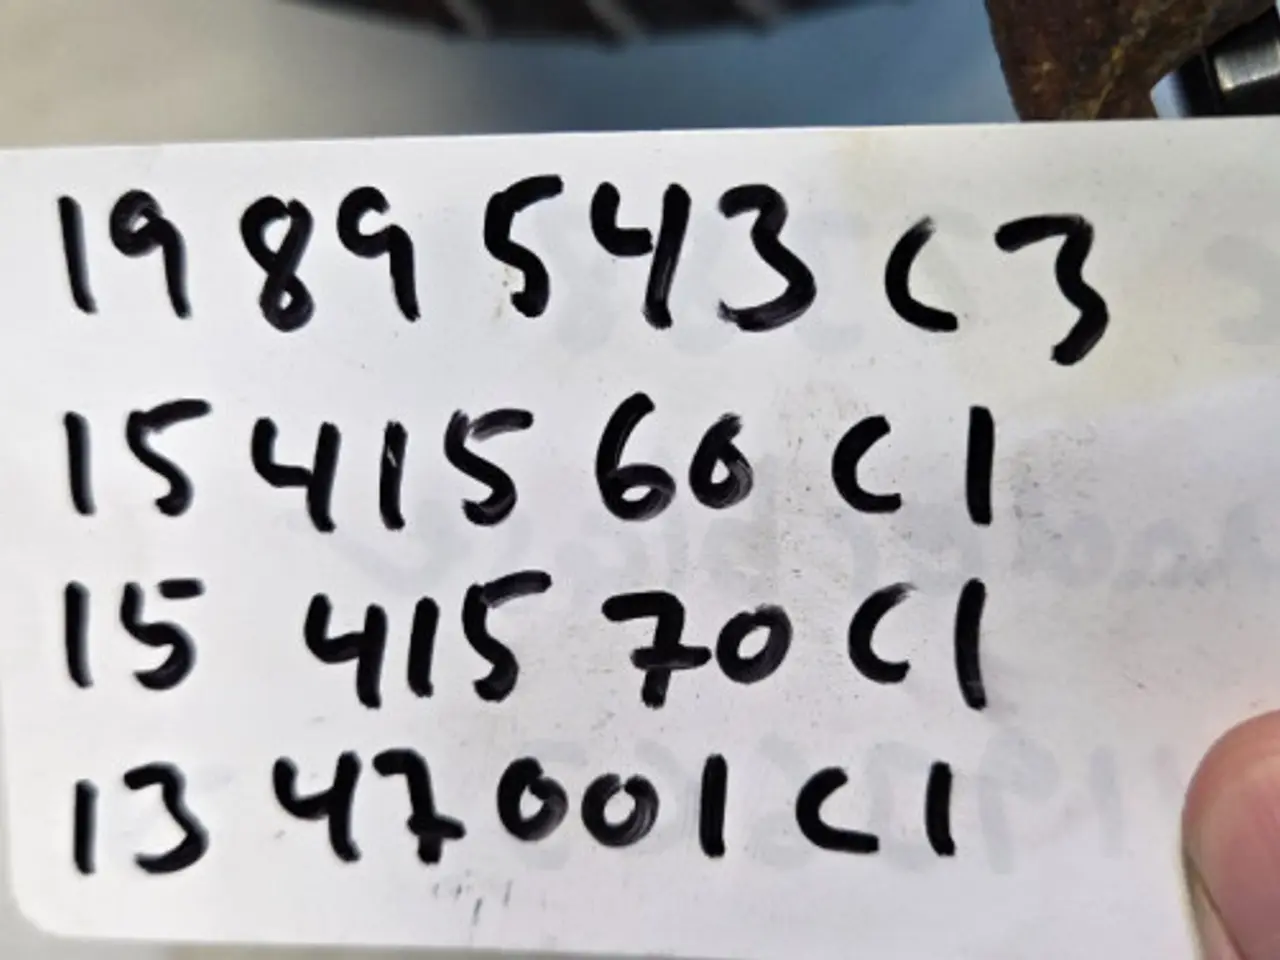 1989 543 C3
15 415 60 C1
15 415 70 C1
13 47001 C1